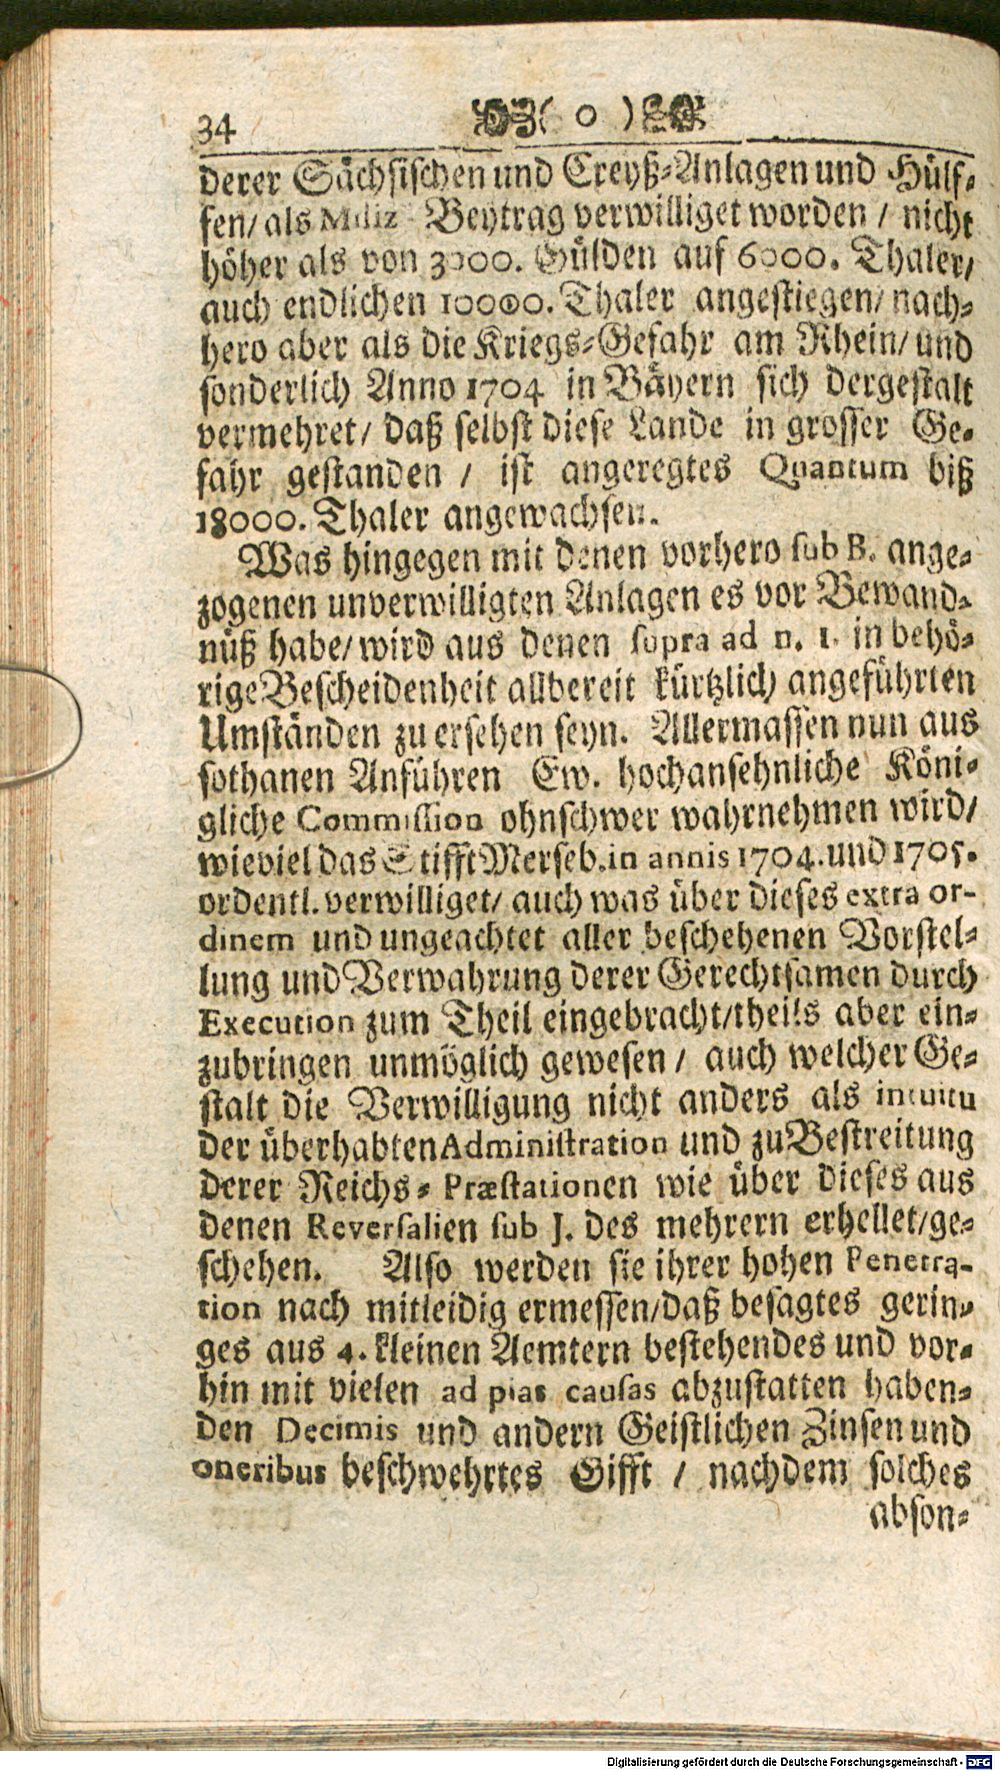 34 ( o )
derer Sächsischen und Creyß-Anlagen und Hülf-
fen/ als Miliz Beytrag verwilliget worden / nicht
höher als von 3000. Gülden auf 6000. Thaler/
auch endlichen 10000. Thaler angestiegen/ nach-
hero aber als die Kriegs-Gefahr am Rhein/ und
sonderlich Anno 1704 in Bäyern sich dergestalt
vermehret/ daß selbst diese Lande in grosser Ge-
fahr gestanden / ist angeregtes Quantum biß
18000. Thaler angewachsen.
Was hingegen mit denen vorhero sub B. ange-
zogenen unverwilligten Anlagen es vor Bewand-
nüß habe/ wird aus denen supra ad n. 1. in behö-
rige Bescheidenheit allbereit kürtzlich angeführten
Umständen zu ersehen seyn. Allermassen nun aus
sothanen Anführen Ew. hochansehnliche Köni-
gliche Commission ohnschwer wahrnehmen wird/
wieviel das Stifft Merseb. in annis 1704. und 1705.
ordentl. verwilliget/ auch was über dieses extra or-
dinem und ungeachtet aller beschehenen Vorstel-
lung und Verwahrung derer Gerechtsamen durch
Execution zum Theil eingebracht/theils aber ein-
zubringen unmöglich gewesen / auch welcher Ge-
stalt die Verwilligung nicht anders als intuitu
der überhabten Administration und zu Bestreitung
derer Reichs-Præstationen wie über dieses aus
denen Reversalien sub J. des mehrern erhellet/ge-
schehen. Also werden sie ihrer hohen Penetra-
tion nach mitleidig ermessen/daß besagtes gerin-
ges aus 4. kleinen Aemtern bestehendes und vor-
hin mit vielen ad pias causas abzustatten haben-
den Decimis und andern Geistlichen Zinsen und
oneribus beschwehrtes Gifft / nachdem solches
abson-
Digitalisierung gefördert durch die Deutsche Forschungsgemeinschaft - DFG